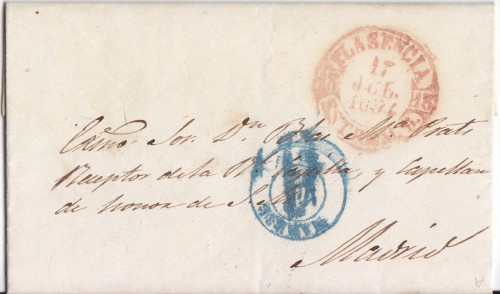 PLASENCIA
17
JUL.
Sor. Dn Blas Ma. Prats
Receptor de la Rl. Capilla, y Capellan
de honor de S. M.
Madrid